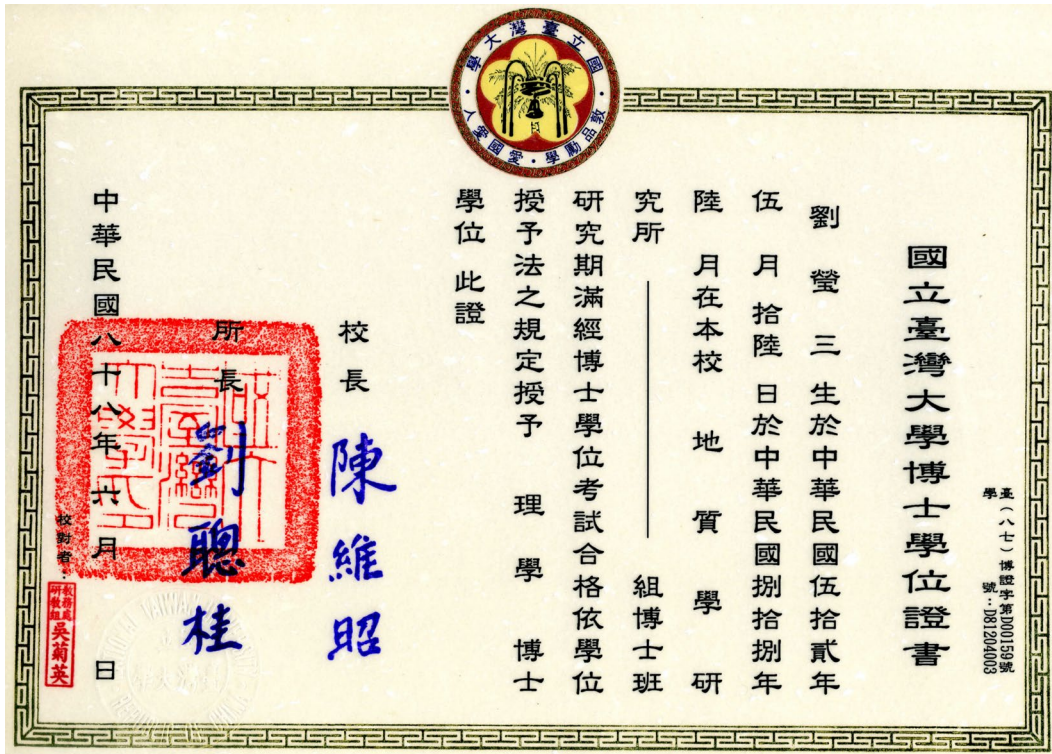 國立臺灣大學
敦品勵學·愛國愛人
臺(八七)博證字第D00159號
學號:D81204003
國立臺灣大學博士學位證書
劉瑩三生於中華民國伍拾貳年
伍月拾陸日於中華民國捌拾捌年
陸月在本校地質學研
究所 組博士班
研究期滿經博士學位考試合格依學位
授予法之規定授予理學博士
學位此證
校長 陳維昭
所長 劉聰桂
中華民國八十八年六月 日
校對者:
教務處
研教組
吳菊英